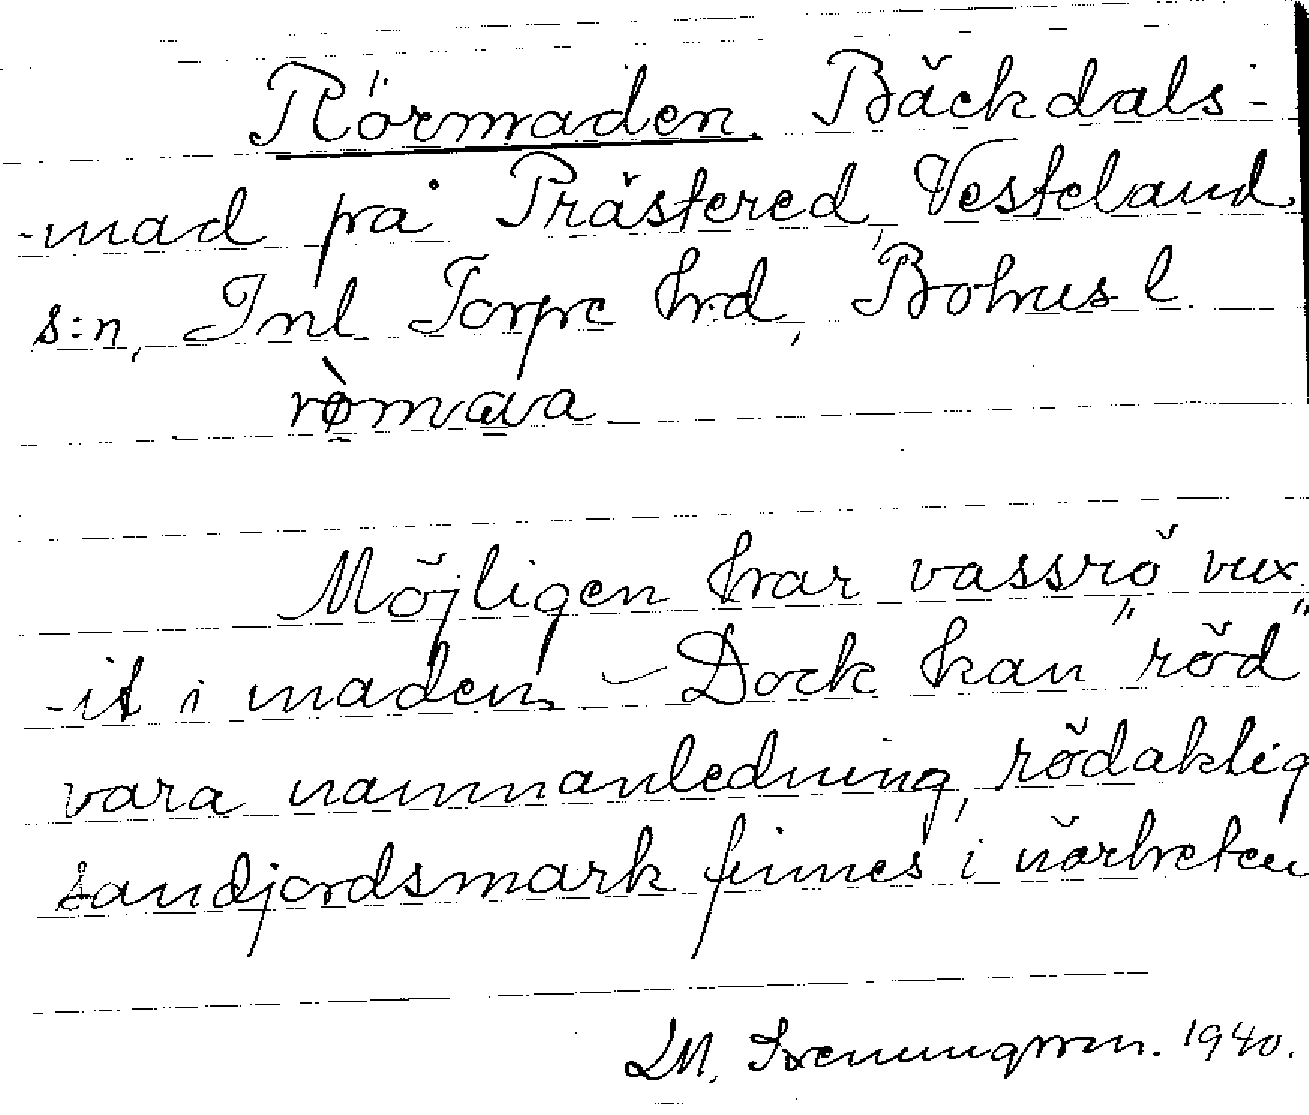 Rörmaden. Bäckdals-
-mad på Prästered, Vesteland
s:n, Inl Torpe hrd, Bohus l.
Möjligen har vassrö vux
-it i maden. – Dock kan "röd"
vara namnanledning, rödaktig
sandjordsmark finnes i närheten
LM. Svenungsson. 1940.